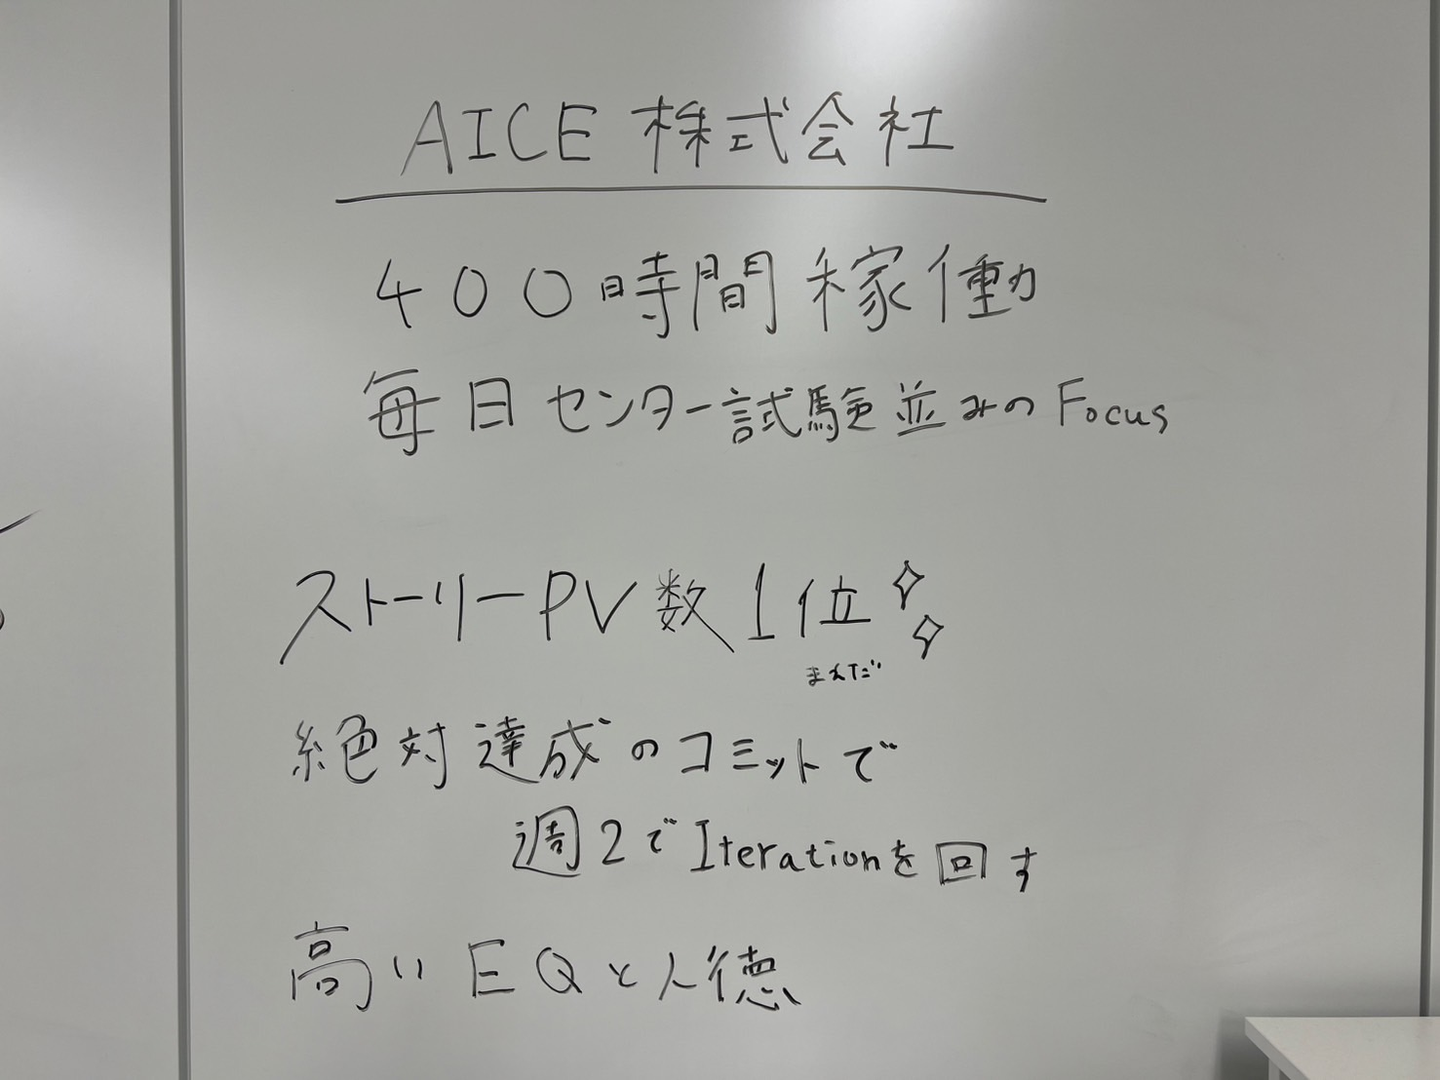 AICE 株式会社
400時間稼働
毎日センター試験並みのFocus
ストーリーPV数1位
絶対達成のコミットで
週2でIterationを回す
高いEQと人徳